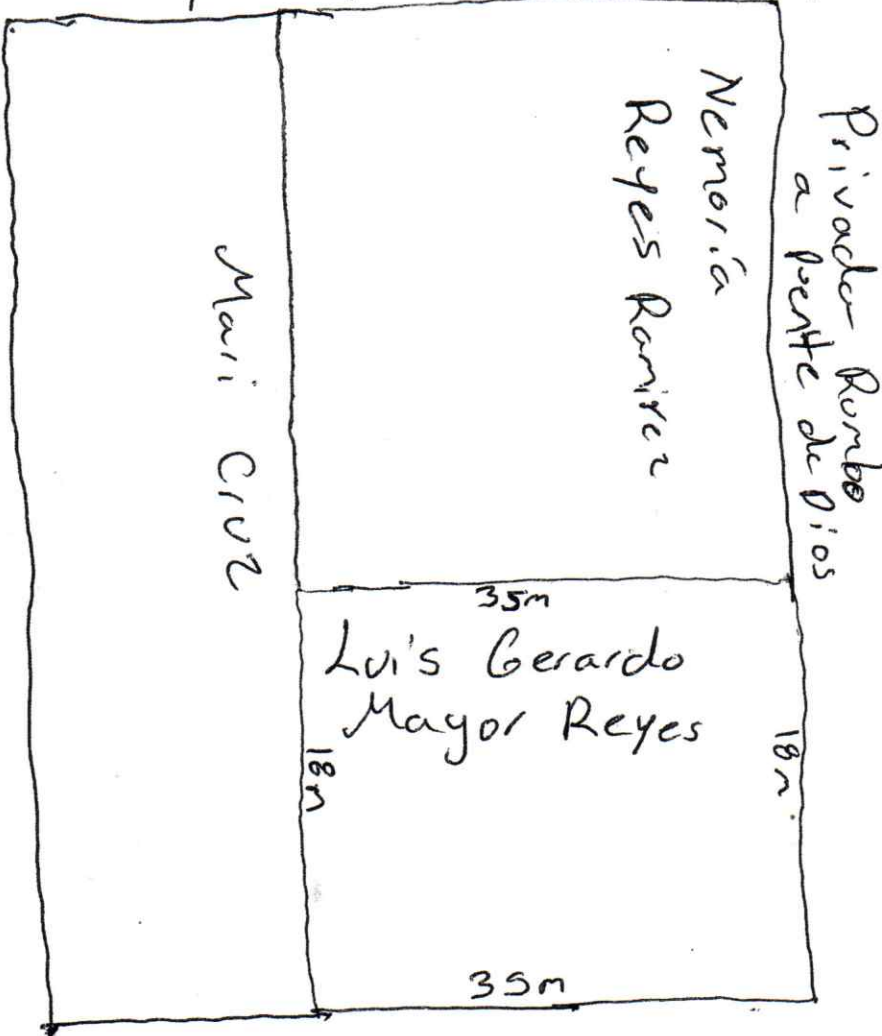 Privada Rumbo
a puente de Dios
Nemoría
Reyes Ramirez
Mari Cruz
35m
Luis Gerardo
Mayor Reyes
18m
18m
35m